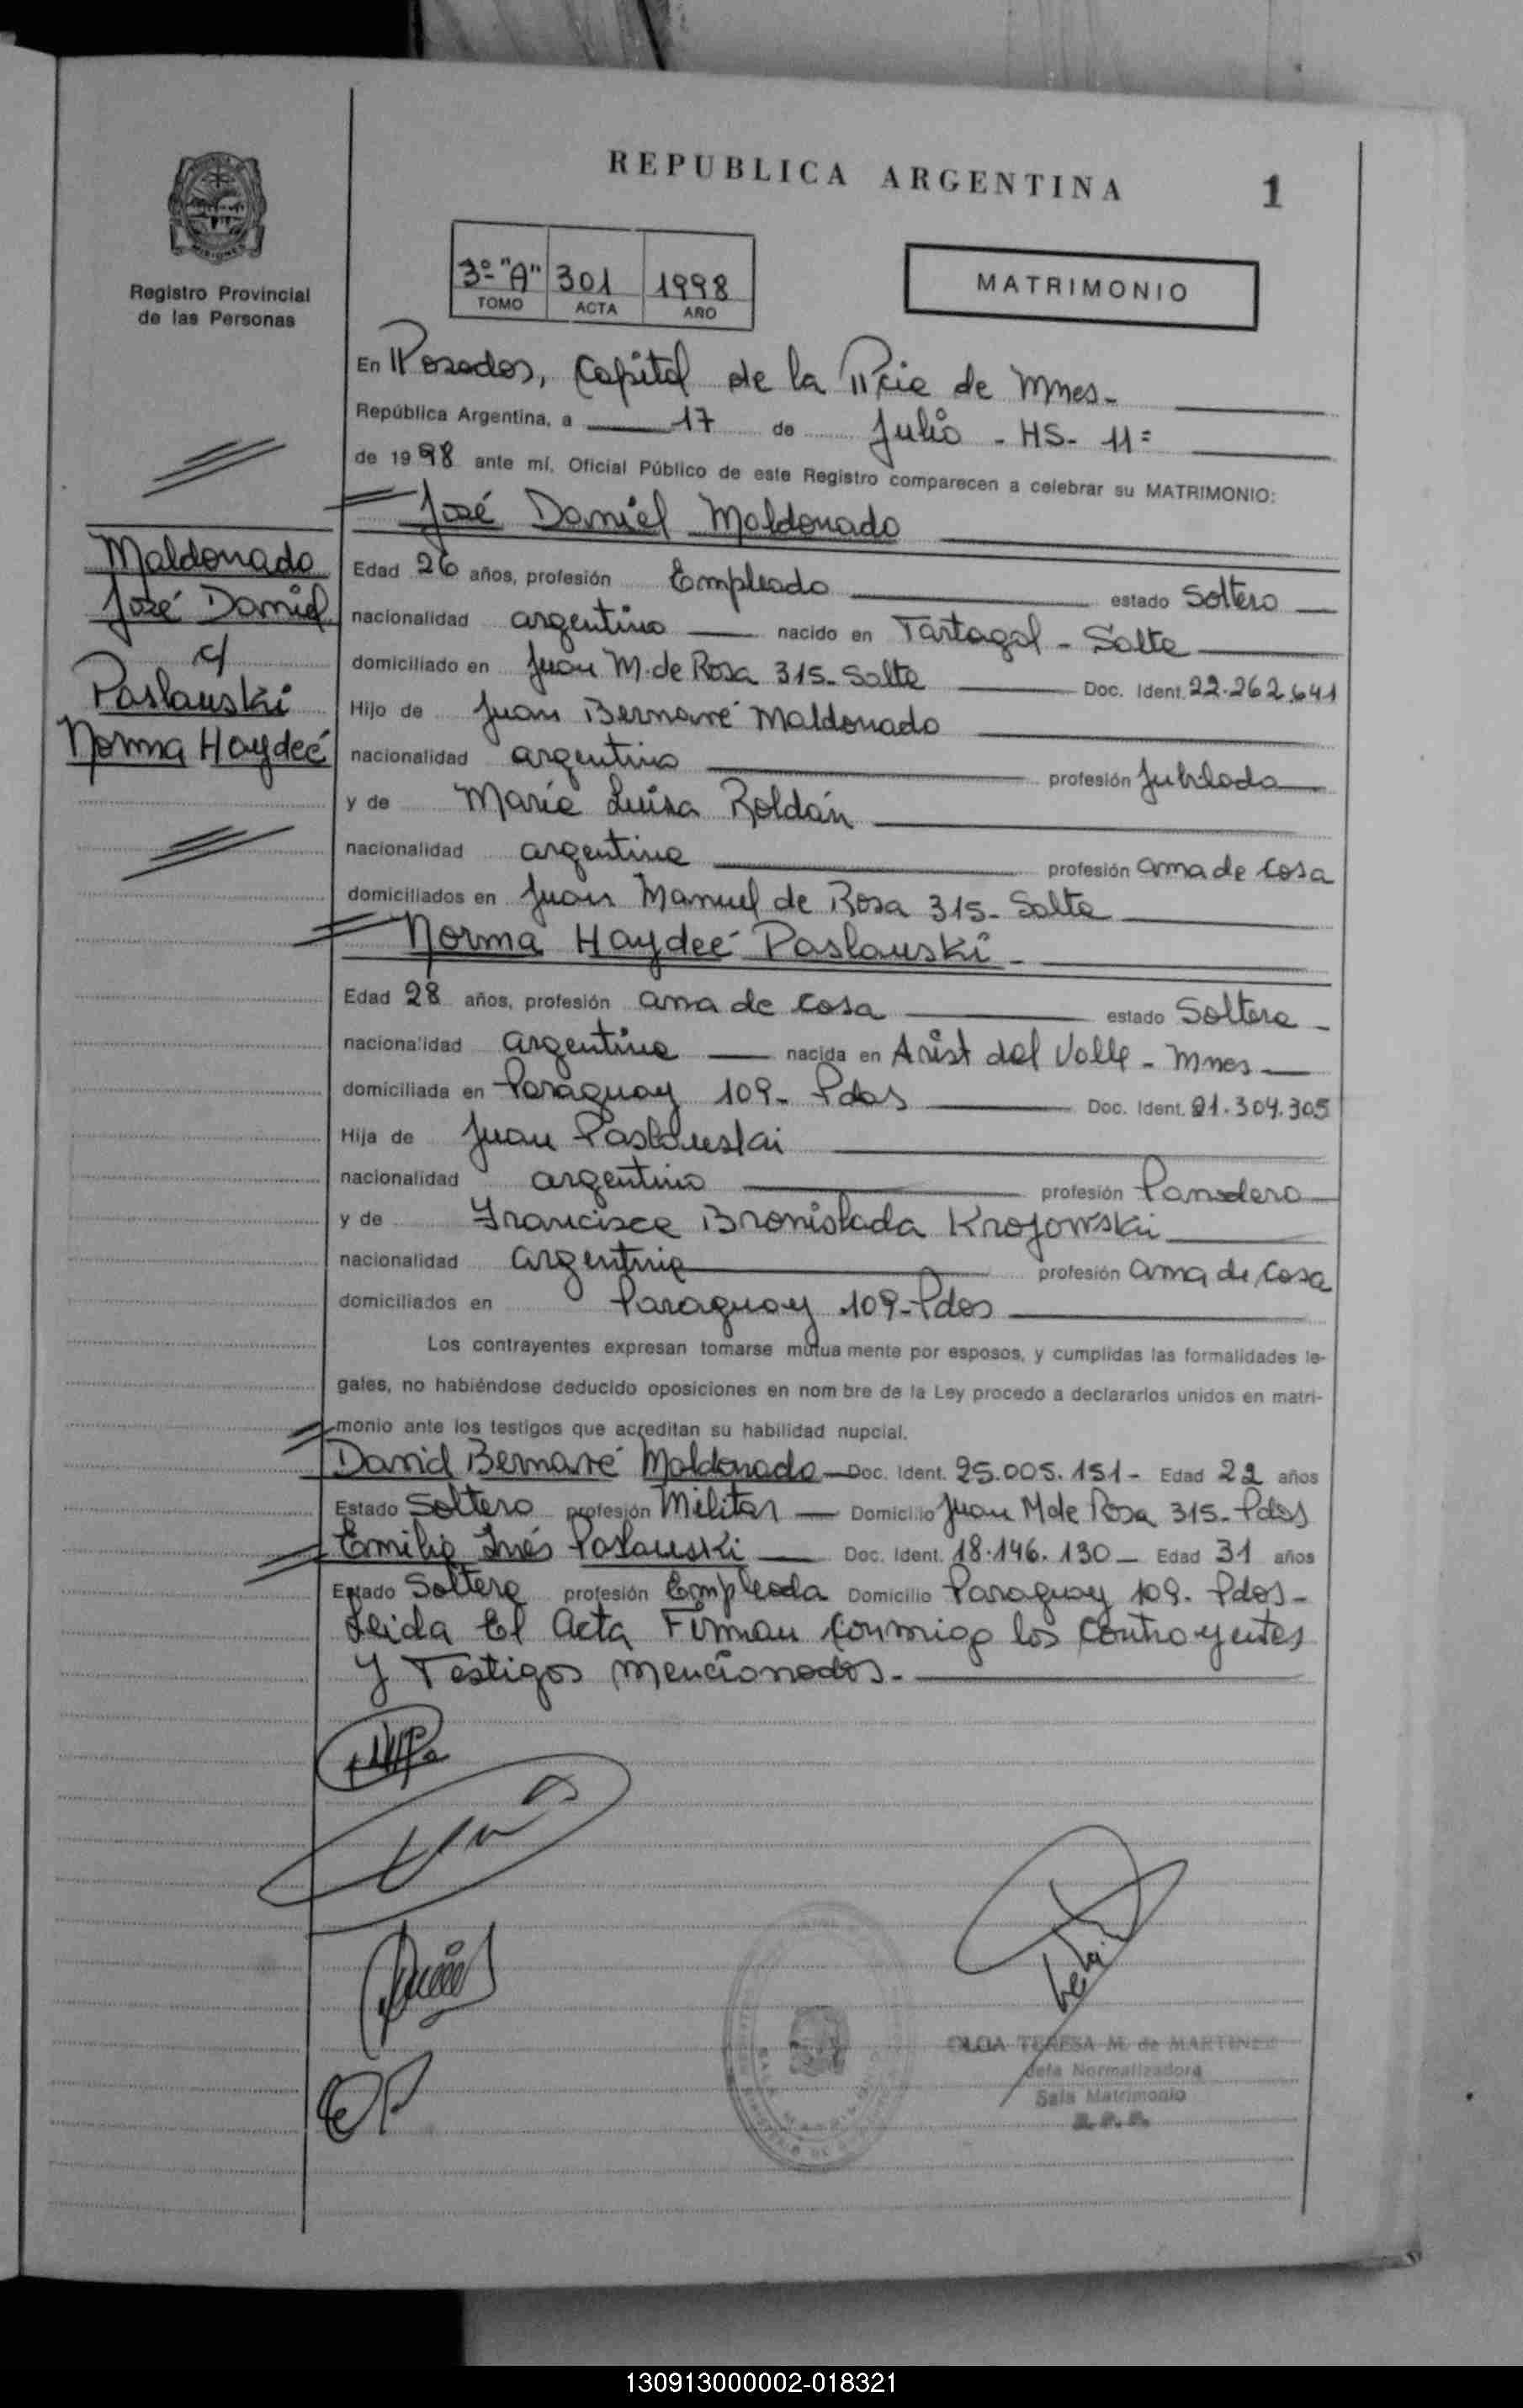 REPUBLICA ARGENTINA
1
Registro Provincial
de las Personas
3º "A" 301 1998
TOMO ACTA AÑO
MATRIMONIO
En Posadas, Capital de la Pcia de Mnes-
República Argentina, a 17 de Julio - HS- 11=
de 1998 ante mí, Oficial Público de este Registro comparecen a celebrar su MATRIMONIO:
José Daniel Maldonado
Maldonado
José Daniel
c/
Paslauski
Norma Haydeé
Edad 26 años, profesión Empleado estado Soltero
nacionalidad argentino nacido en Tartagal - Salta
domiciliado en Juan M. de Rosa 315- Salta Doc. Ident. 22.262.641
Hijo de Juan Bernavé Maldonado
nacionalidad argentino profesión Jubilado
y de María Luisa Roldán
nacionalidad argentina profesión ama de casa
domiciliados en Juan Manuel de Rosa 315- Salta
Norma Haydeé Paslauski -
Edad 28 años, profesión ama de casa estado Soltera -
nacionalidad argentina nacida en Arist del Valle - Mnes
domiciliada en Paraguay 109- Pdas Doc. Ident. 21.304.305
Hija de Juan Paslauski
nacionalidad argentino profesión Panadero
y de Francisca Bronislada Krojowski
nacionalidad argentina profesión ama de casa
domiciliados en Paraguay 109-Pdas
Los contrayentes expresan tomarse mutua mente por esposos, y cumplidas las formalidades le-
gales, no habiéndose deducido oposiciones en nom bre de la Ley procedo a declararlos unidos en matri-
monio ante los testigos que acreditan su habilidad nupcial.
David Bernavé Maldonado Doc. Ident. 25.005.151- Edad 22 años
Estado Soltero profesión Militar Domicilio Juan M de Rosa 315- Pdas
Emilia Inés Paslauski Doc. Ident. 18.146.130 Edad 31 años
Estado Soltera profesión Empleada Domicilio Paraguay 109- Pdas-
Leida El Acta Firman conmigo los contrayentes
y Testigos mencionados.-
OLGA TERESA M. de MARTINEZ
Jefa Normalizadora
Sala Matrimonio
R.P.P.
130913000002-018321